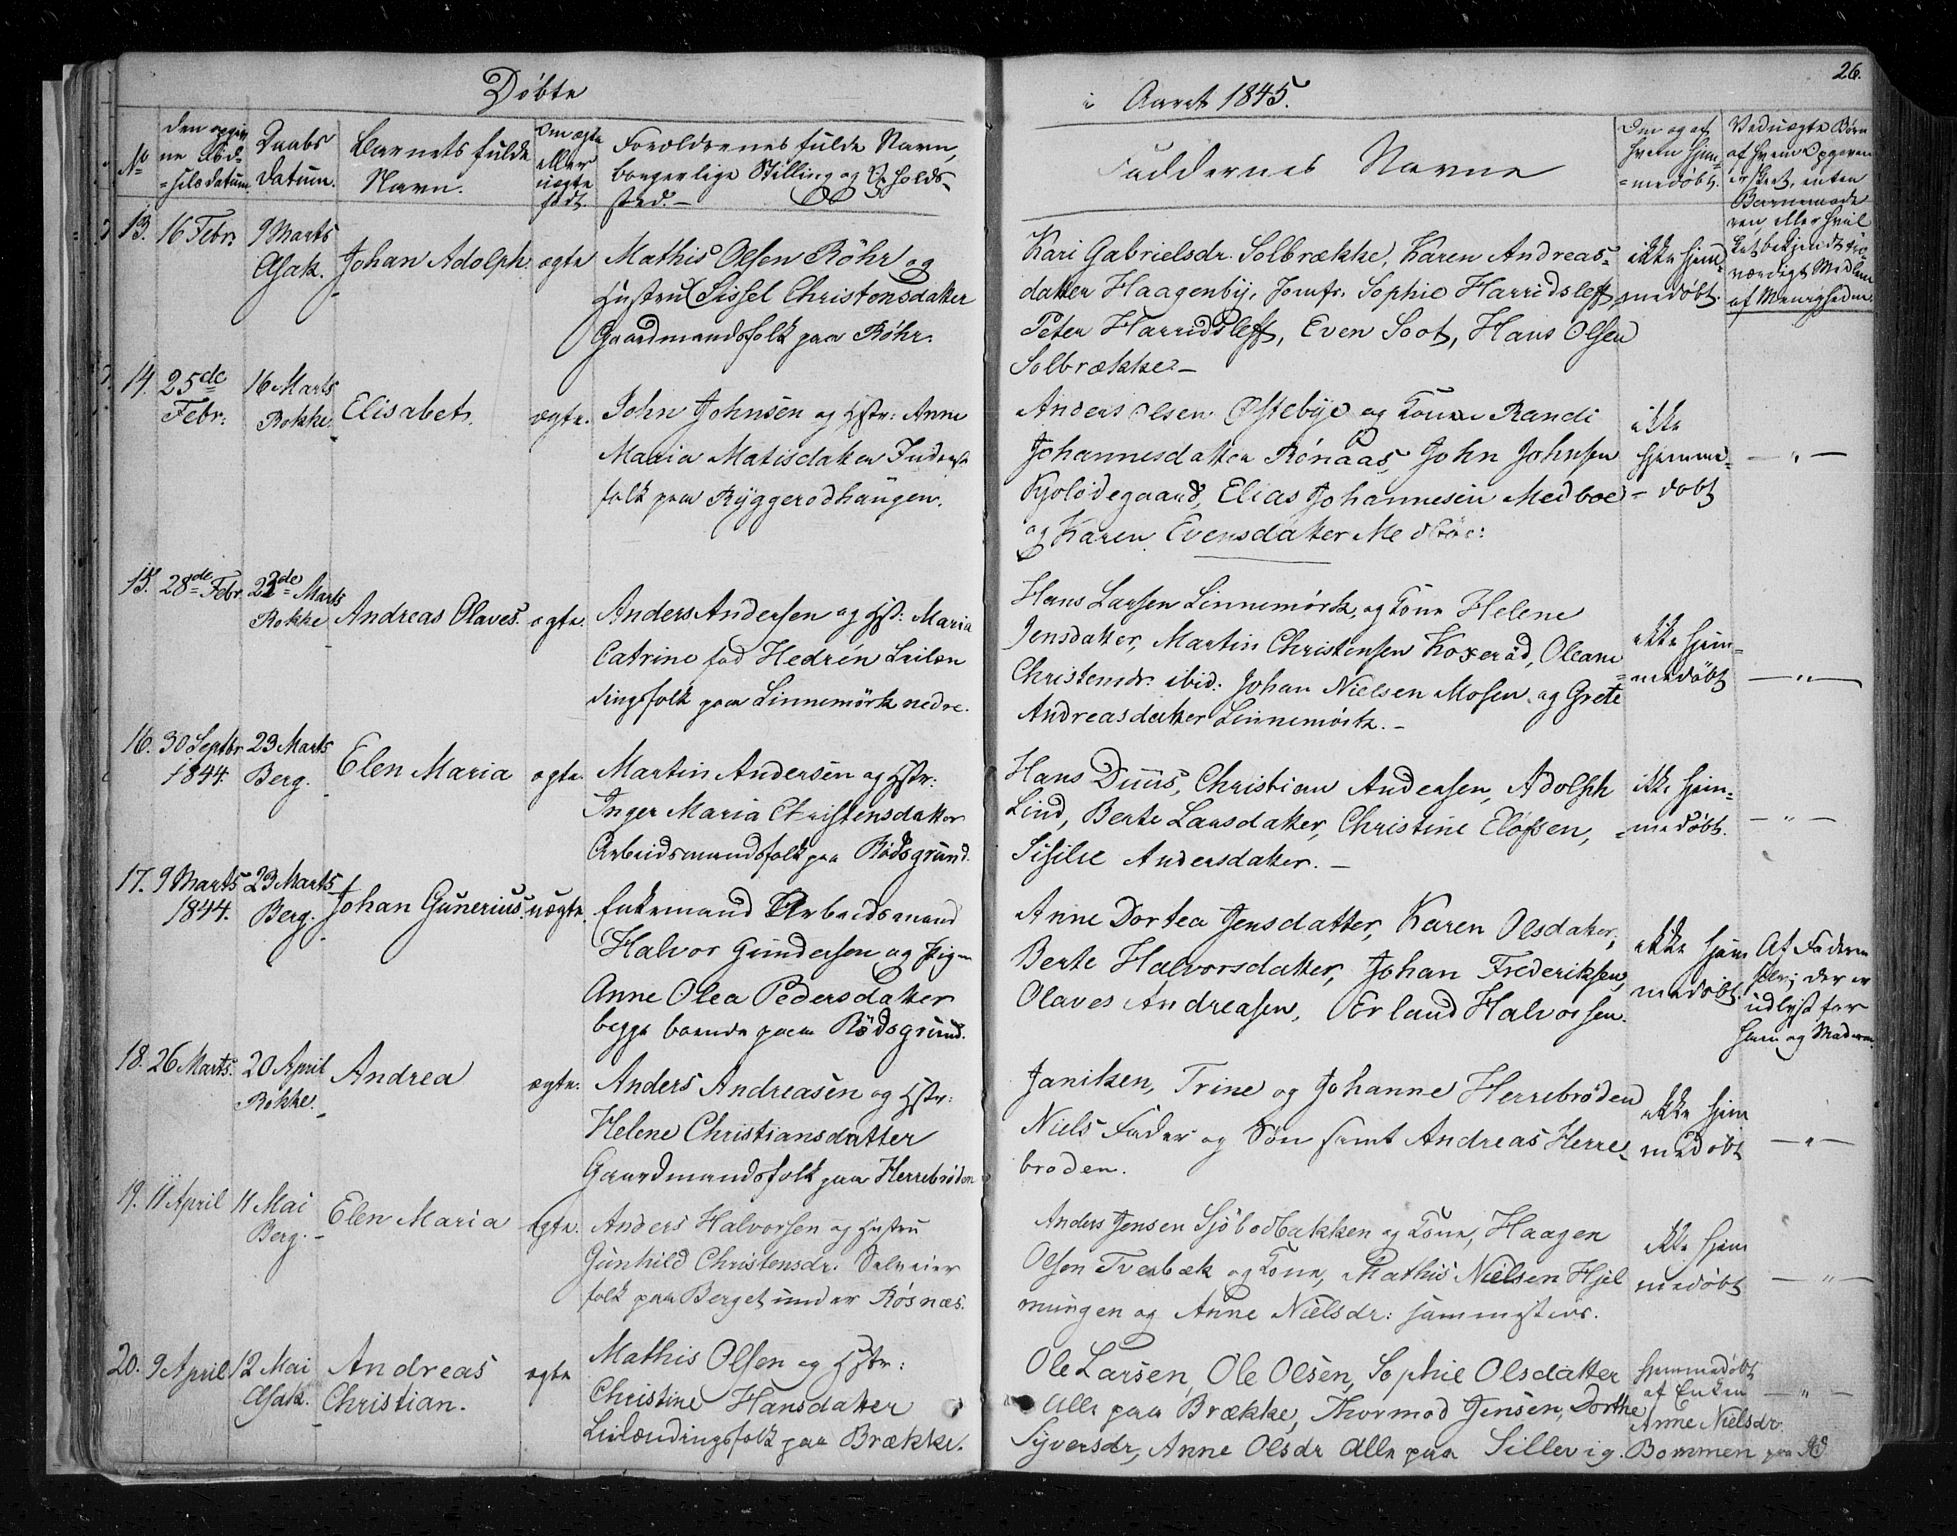 Døbte
i Aaret 1845.
26.
No
den opgiv
ne Fød-
=selsdatum
Daabs
Datum.
Barnets fulde
Navn.
Om ægte
eller
uægte
født.
Forældrenes fulde Navn,
borgerlige Stilling og Opholds-
sted.-
Faddernes Navne
Om og af
hvem hjem-
=medøbt.
Ved uægte Børn
af hvem Opgaven
er skeet, enten
Barnemode
ren, eller hvil
ket bekjendt tro-
værdigt Medlem
af Menigheden.
13. 16 Febr. 9 Marts
Asak.
Johan Adolph. ægte
Mathis Olsen Röhr og
Hustru Sissel Christensdatter
Gaardmandsfolk paa Röhr.
Kari Gabrielsdr. Solbrække, Karen Andreas-
datter Haagenby, Jomfr. Sophie Harridsleff,
Peter Harridsleff, Even Soot, Hans Olsen
Solbrække-
ikke hjem-
medøbt.
14. 25de
Febr:
16 Marts
Rokke.
Elisabet. ægte.
John Johnsen og Hstr: Anne
Maria Matisdatter Inderst
folk paa Ryggerødhaugen.
Anders Olsen Østebye og Kone Randi
Johannesdatter Rønaas, John Johnsen
Kjolødegaard, Elias Johannesen Medboe
og Karen Evensdatter Medböe:
ikke
hjemme-
=døbt
— „ —
15. 28de Febr. 23de Marts
Rokke
Andreas Olaves. ægte.
Anders Andersen og Hst: Maria
Catrine fød Hedrén Leilæn
dingsfolk paa Linnemörk nedre.
Hans Larsen Linnemörk, og Kone Helene
Jensdatter, Martin Christensen Koxerød, Oleane
Christensdr. ibid: Johan Nielsen Mosen og Grete
Andreasdatter Linnemörk.-
ikke hjem-
=medøbt
— „ —
16. 30 Septbr
1844.
23 Marts
Berg.
Elen Maria ægte.
Martin Andersen og Hstr:
Inger Maria Christensdatter
Arbeidsmandsfolk paa Rødsgrund.
Hans Duus, Christian Andersen, Adolph
Lind, Berte Larsdatter, Christine Elofsen,
Sisilie Andersdatter.-
ikke hjem-
=medøbt.
— „ —
17. 9 Marts
1844.
23 Marts
Berg.
Johan Gunerius. uægte.
Enkemand Arbeidsmand
Halvor Gundersen og Pigen
Anne Olea Pedersdatter
begge boende paa Rødsgrund.
Anne Dortea Jensdatter, Karen Olsdatter,
Berte Halvorsdatter, Johan Frederiksen,
Olaves Andreasen, Erland Halvorsen.
ikke hjem
medøbt.
Af Faderen
selv; der er
udlyst for
ham og Moderen.
18. 26 Marts. 20 April
Rokke.
Andrea ægte.
Anders Andreasen og Hstr:
Helene Christiansdatter
Gaardmandsfolk paa Herrebrøden
Janiken, Trine og Johanne Herrebrøden
Niels Fader og Søn samt Andreas Herre-
brøden.
ikke hjem
medøbt
— „ —
19. 11 April 11 Mai
Berg.-
Elen Maria ægte.
Anders Halvorsen og Hustru
Gunhild Christensdr. Selveier
folk paa Berget under Røsnæs.
Anders Jensen Sjöbodbakken og Kone, Haagen
Olsen Tverbæk og Kone, Mathis Nielsen Hjel
mungen og Anne Nielsdr: sammesteds.
ikke hjem
medøbt
— „ —
20. 9 April 12 Mai
Asak.
Andreas
Christian.
ægte
Mathis Olsen og Hstr:
Christine Hansdatter
Leilændingsfolk paa Brække.
Ole Larsen, Ole Olsen, Sophie Olsdatter
Alle paa Brække, Thormod Jensen, Dorthe
Syversdr, Anne Olsdr alle paa Sillevig.
hjemmedøbt
af Enken
Anne Nielsdr
Bommen paa
— „ —